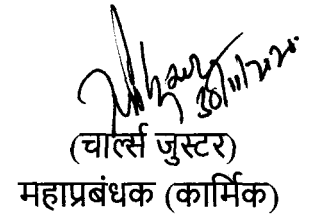 30/11/2020
(चार्ल्स जुस्टर)
महाप्रबंधक (कार्मिक)